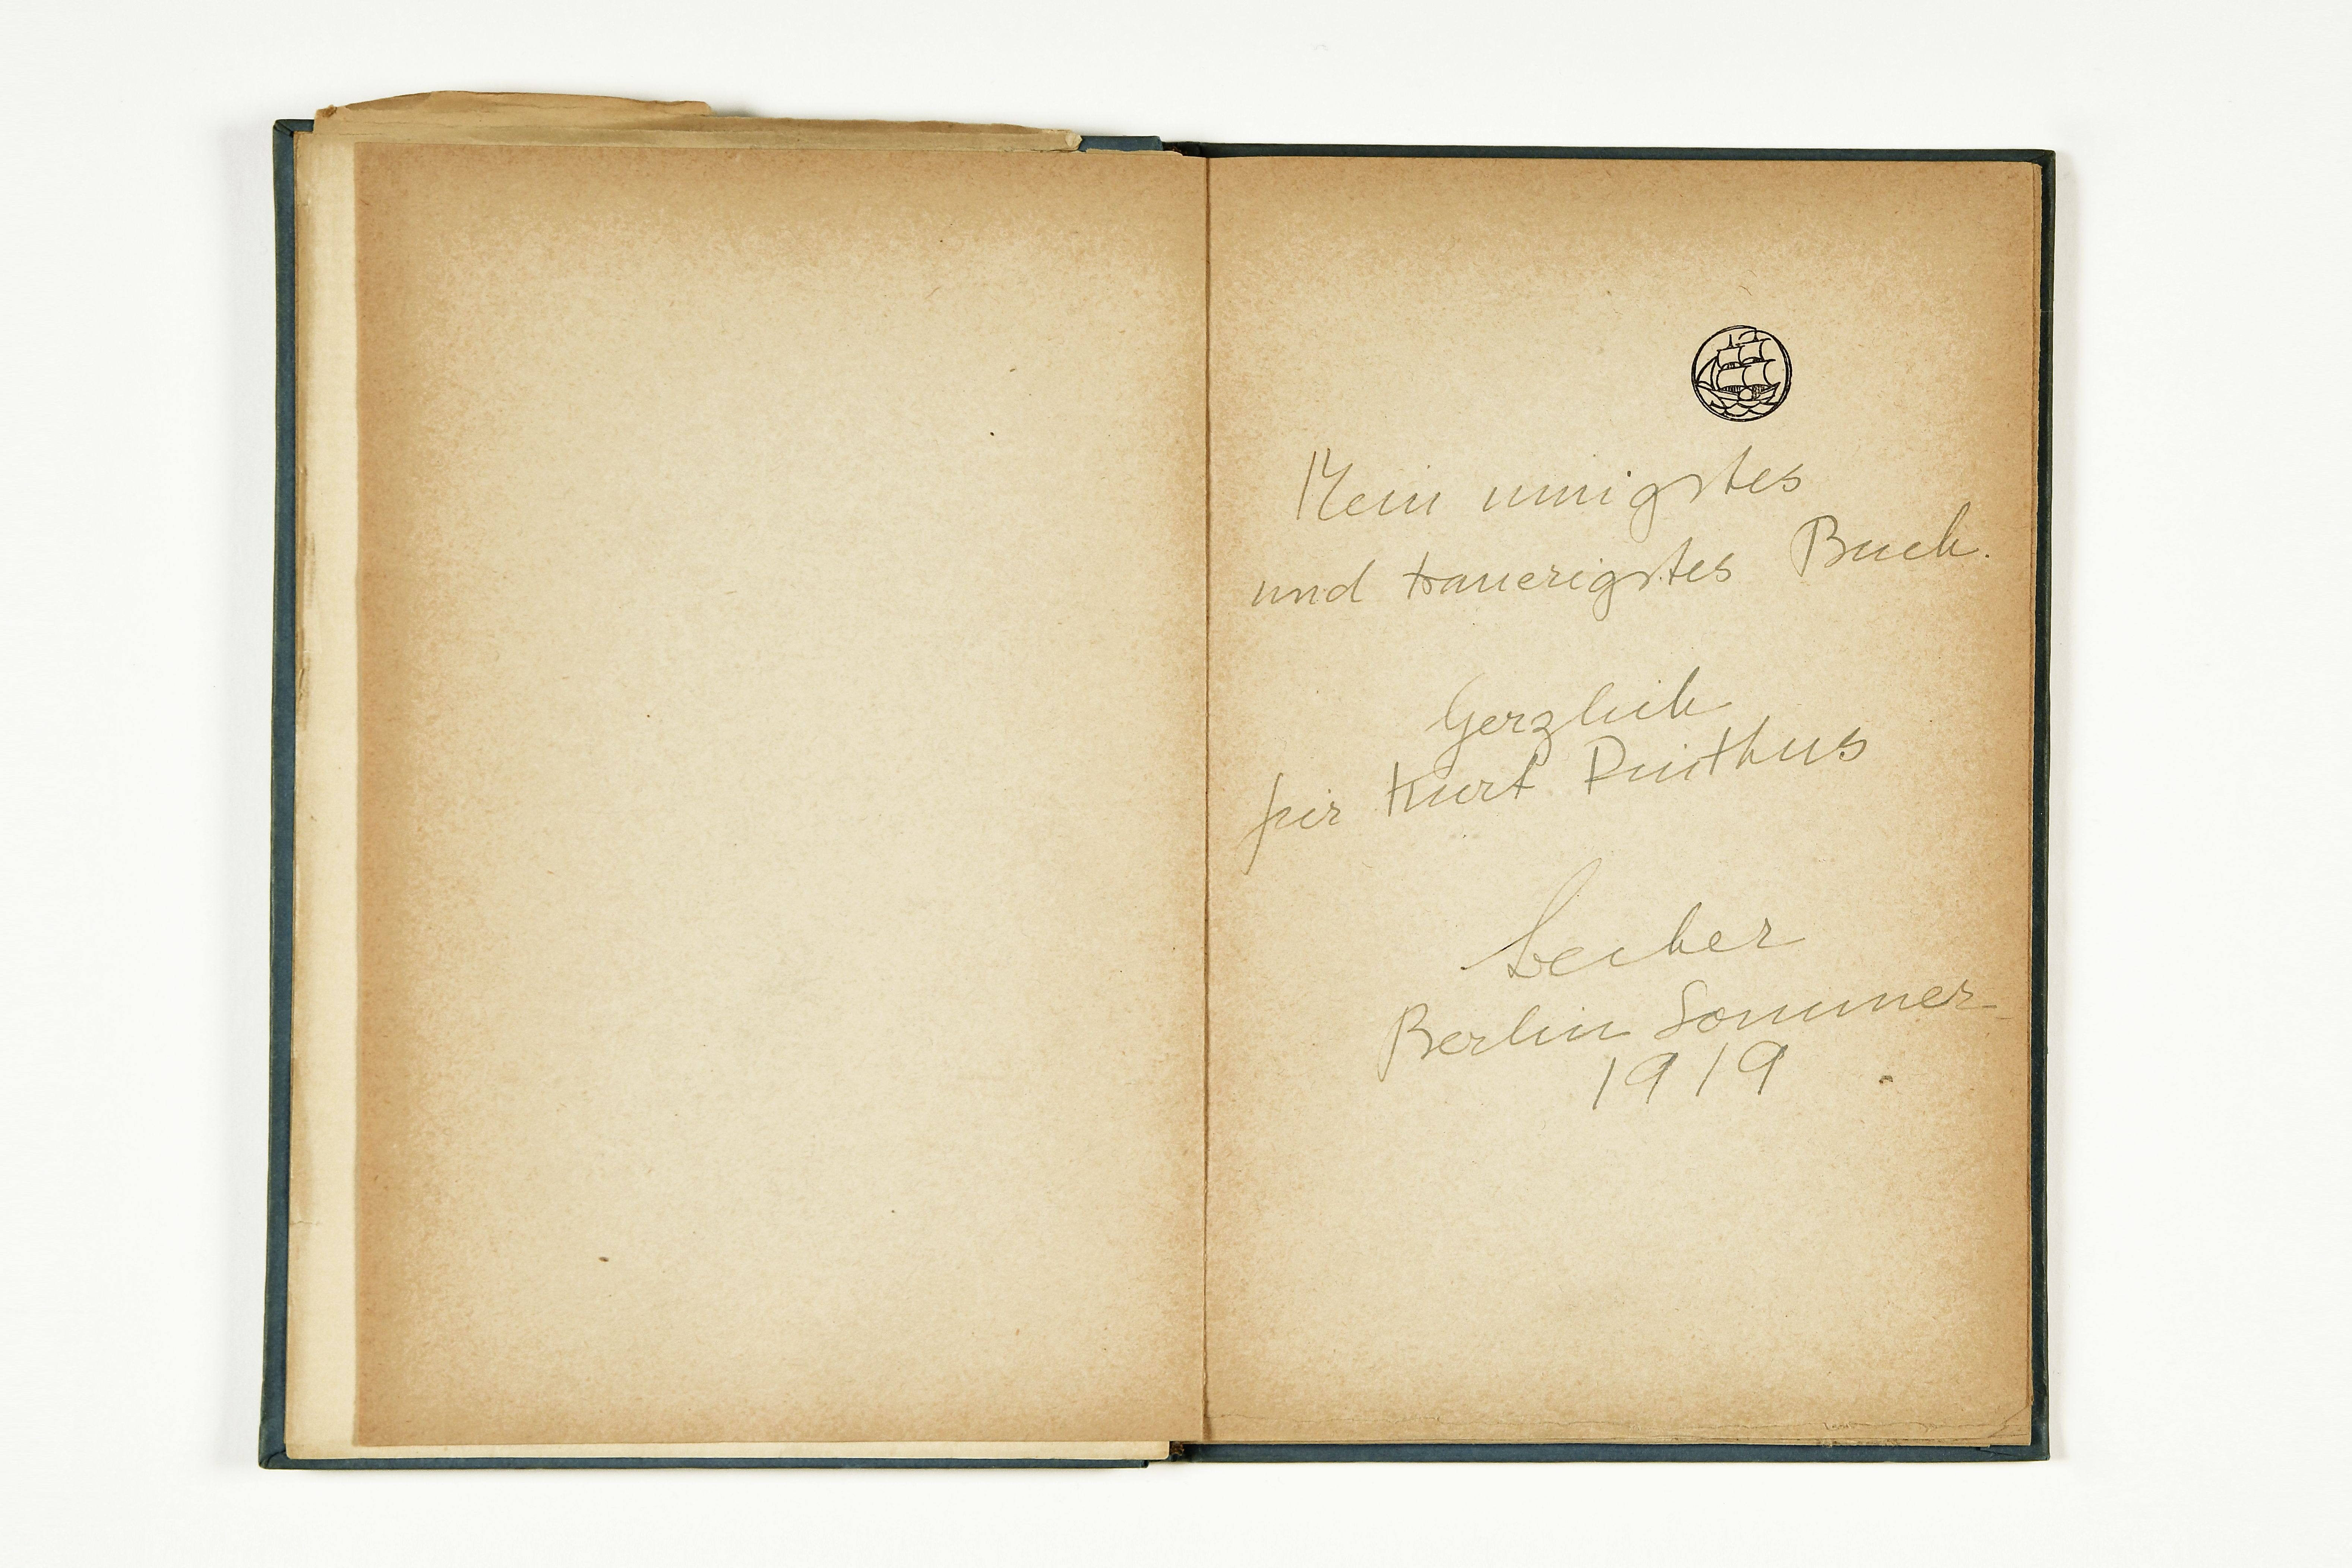 Mein innigstes
und trauerigstes Buch.
Herzlich
für Kurt Pinthus
Becher
Berlin Sommer
1919